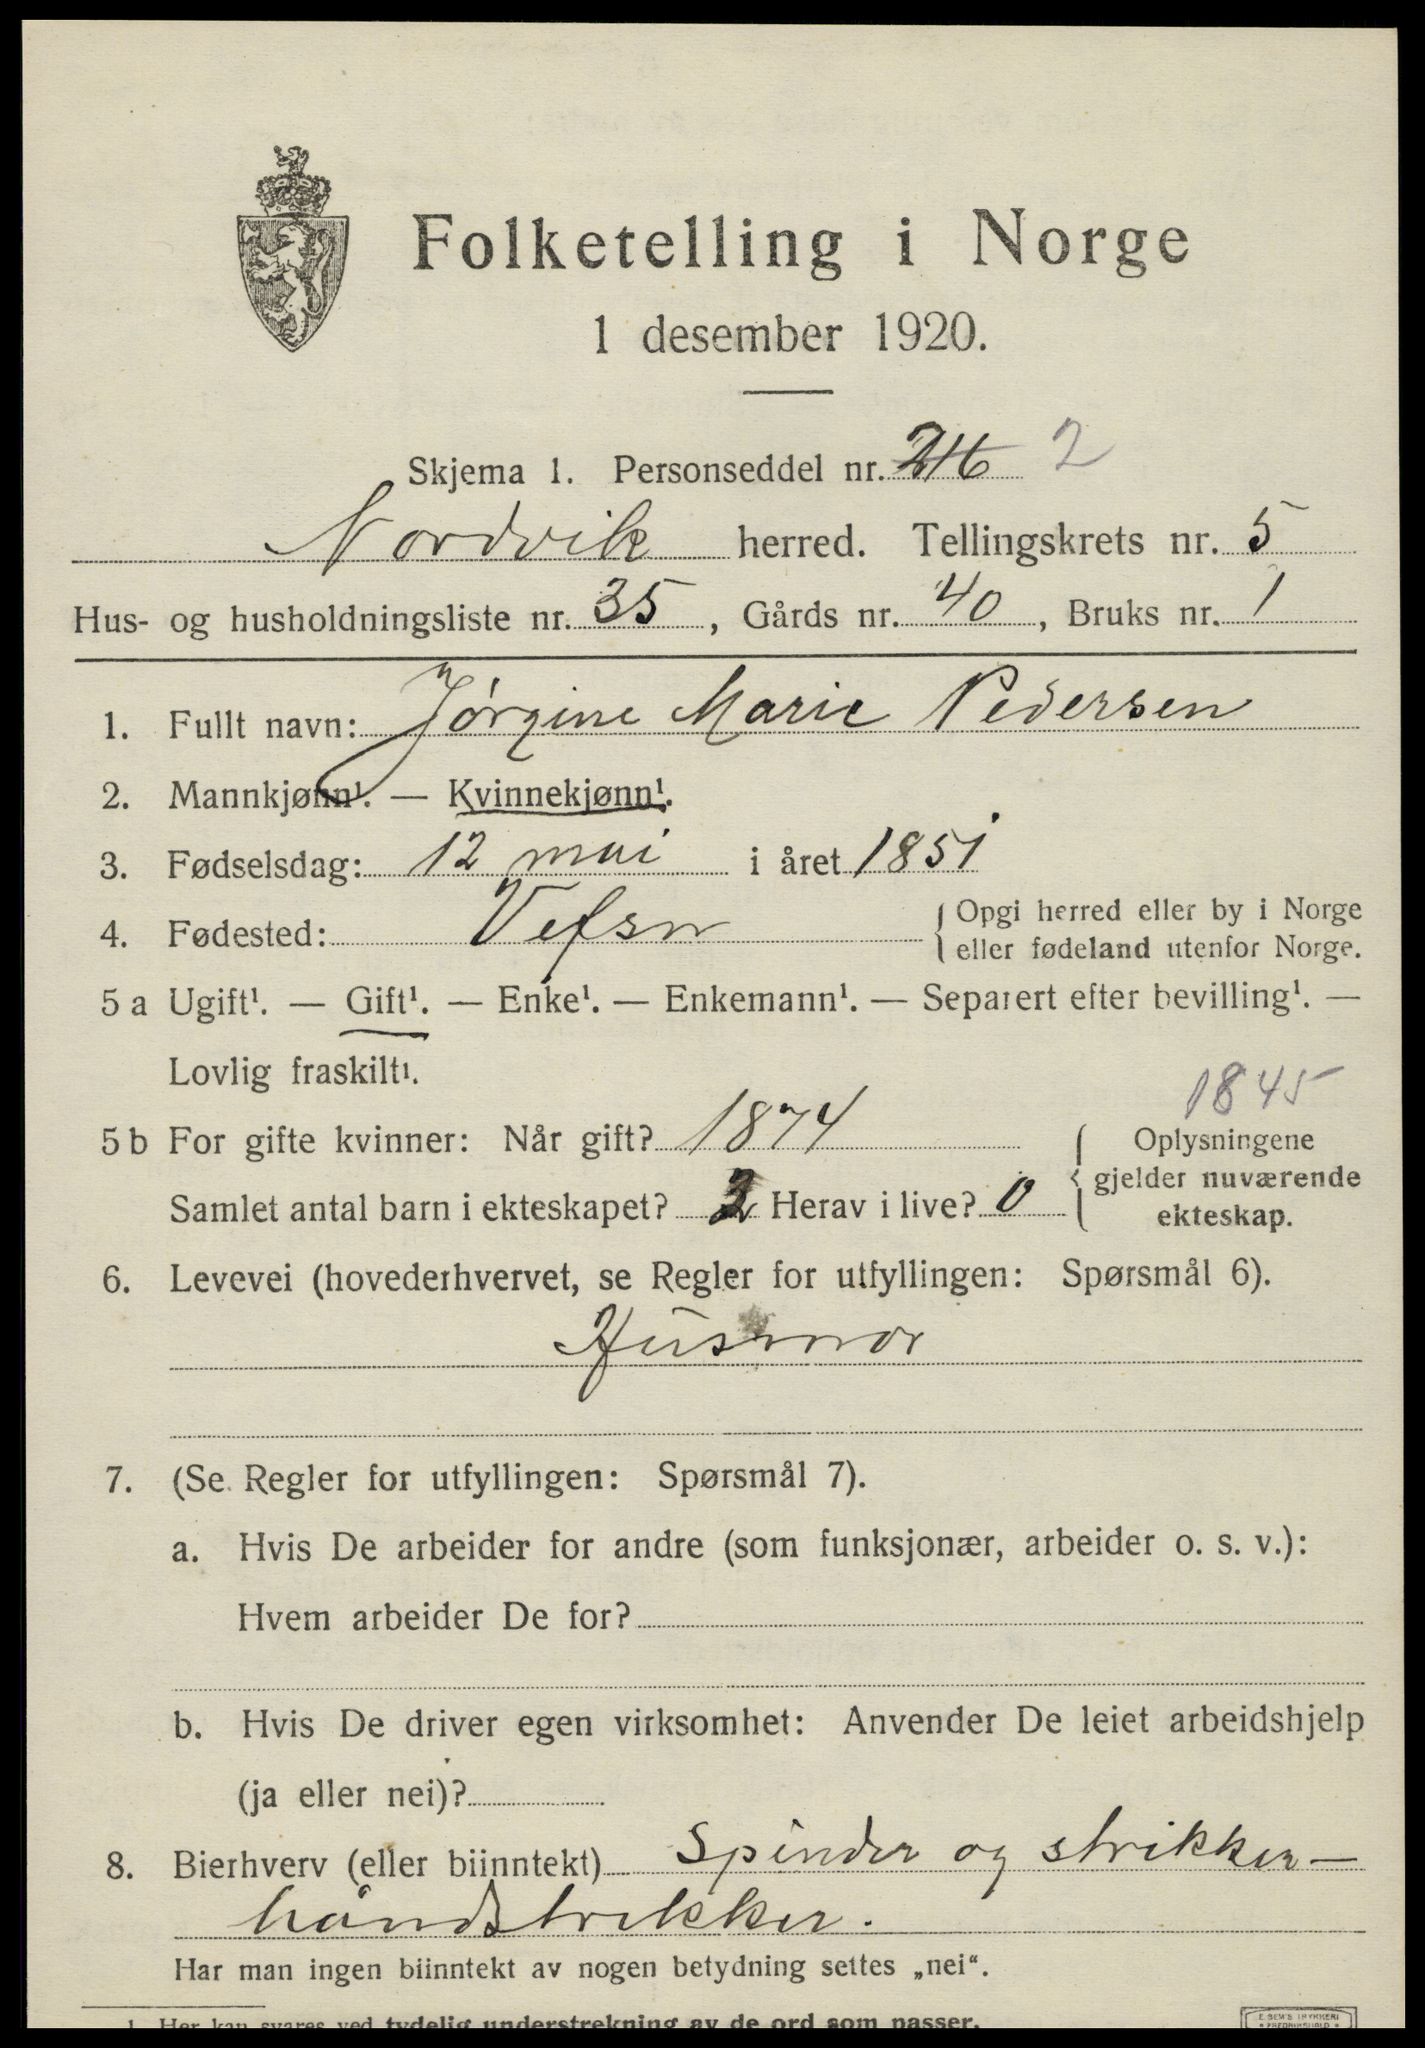 Folketelling i Norge
1 desember 1920.
Skjema 1. Personseddel nr. 246 2
Nordvik herred. Tellingskrets nr. 5
Hus- og husholdningsliste nr. 35, Gårds nr. 40, Bruks nr. 1
1. Fullt navn: Jørgine Marie Pedersen
2. Mannkjønn¹. — Kvinnekjønn¹.
3. Fødselsdag: 12 mai i året 1851
4. Fødested: Vefsn { Opgi herred eller by i Norge
eller fødeland utenfor Norge.
5 a Ugift¹. — Gift¹. — Enke¹. — Enkemann¹. — Separert efter bevilling¹. —
Lovlig fraskilt¹.
1845
5 b For gifte kvinner: Når gift? 1874 { Oplysningene
gjelder nuværende
Samlet antal barn i ekteskapet? 2 Herav i live? 0
ekteskap.
6. Levevei (hovederhvervet, se Regler for utfyllingen: Spørsmål 6).
Husmor
7. (Se Regler for utfyllingen: Spørsmål 7).
a. Hvis De arbeider for andre (som funksjonær, arbeider o. s. v.):
Hvem arbeider De for?
b. Hvis De driver egen virksomhet: Anvender De leiet arbeidshjelp
(ja eller nei)?
8. Bierhverv (eller biinntekt) Spinder og strikker —
håndstrikker.
Har man ingen biinntekt av nogen betydning settes „nei“.
1 Her kan svares ved tydelig understrekning av de ord som passer.
E. SEM'S TRYKKERI
FREDRIKSHALD